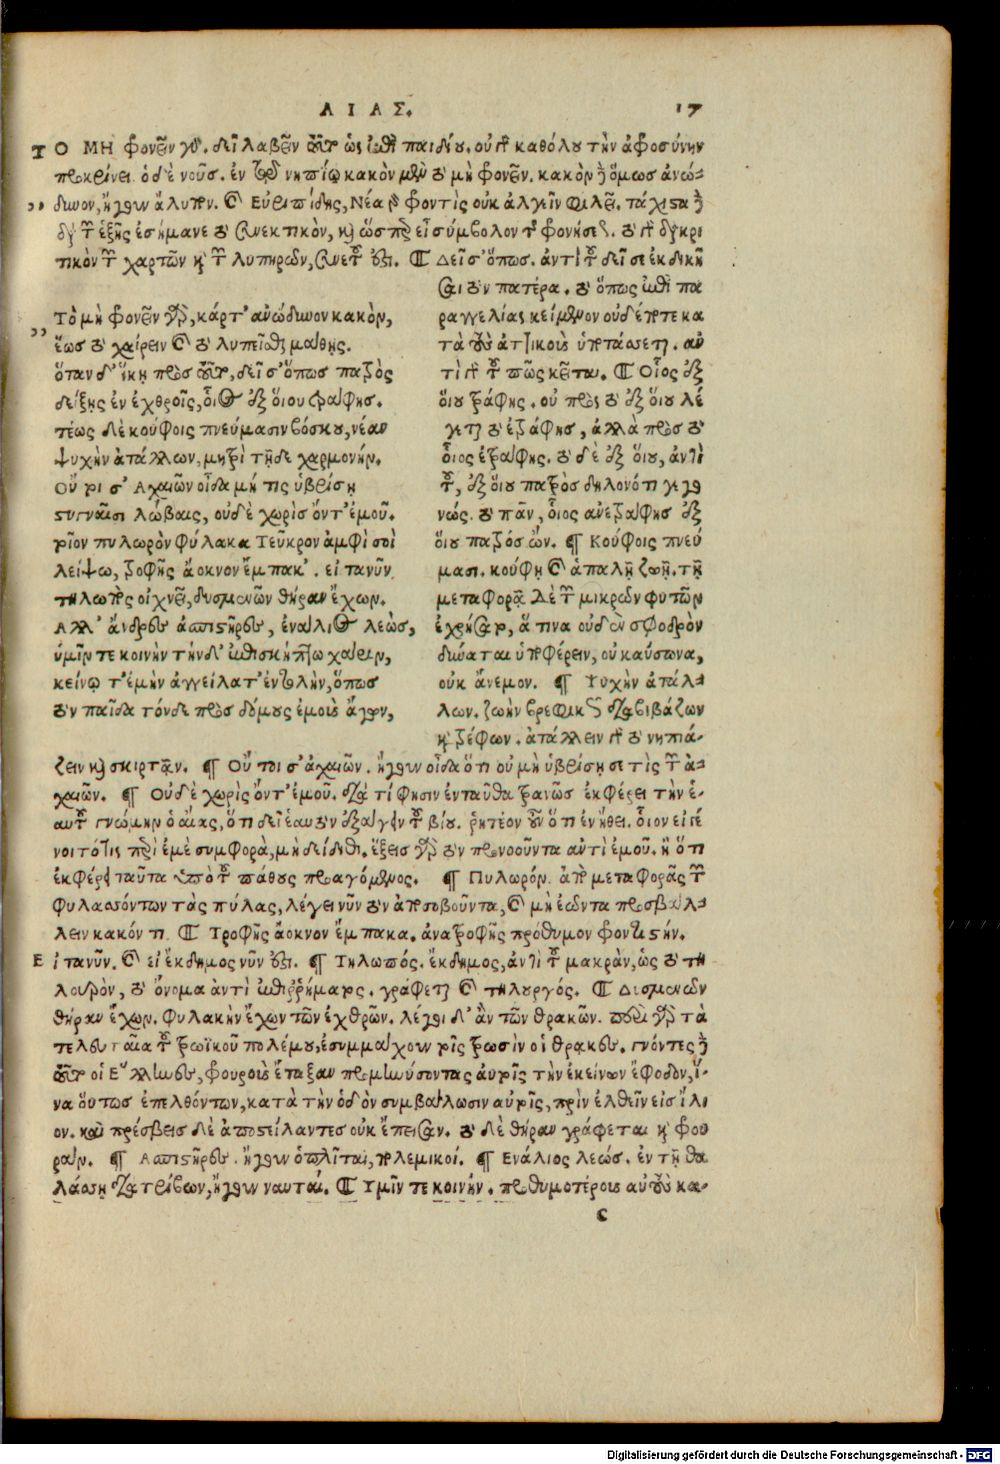 ΑΙΑΣ. 17
ΤΟ ΜΗ φρονεῖν γὰρ. δεῖ λαβεῖν αὐτὸ ὡς ἐπὶ παιδίου. οὐ γὰρ καθόλου τὴν ἀφροσύνην
προκρίνει. ὁ δὲ νοῦς. ἐν τῷ νηπίῳ κακὸν μὲν τὸ μὴ φρονεῖν. κακὸν δὲ ὅμως ἀνώ-
δυνον, ἤγουν ἄλυπον. καὶ Εὐριπίδης, Νέα φροντὶς οὐκ ἀλγεῖν φιλεῖ. τάχιστα δὲ
διὰ τῶν ἑξῆς ἐσήμανε τὸ συνεκτικὸν, καὶ ὥσπερ εἰ σύμβολον τοῦ φρονῆσαι. τὸ γὰρ διακρι
τικὸν τῶν χαρτῶν καὶ τῶν λυπηρῶν, συνετοῦ ἐστι. ¶ Δεῖ σ' ὅπως. ἀντὶ τοῦ δεῖ σε ἐκδικῆ
σαι τὸν πατέρα. τὸ ὅπως ἐπὶ πα
ραγγελίας κείμενον οὐδέποτε κα
τὰ τοὺς ἀττικοὺς ὑποτάσσεται. ἀν
τὶ γὰρ τοῦ πῶς κεῖται. ¶ Οἷος ἐξ
οἵου τράφης. οὐ πρὸς τὸ ἐξ οἵου λέ
γεται τὸ ἐτράφης, ἀλλὰ πρὸς τὸ
οἷος ἐτράφης. τὸ δὲ ἐξ οἵου, ἀντὶ
τοῦ, ἐξ οἵου πατρὸς δηλονότι γεγο
νώς. τὸ πᾶν, οἷος ἀνετράφης ἐξ
οἵου πατρός ὤν. ¶ Κούφοις πνεύ
μασι. κούφη καὶ ἁπαλῇ ζωῇ. τῇ
μεταφορᾷ δὲ τῶν μικρῶν φυτῶν
ἐχρήσατο, ἅ τινα οὐδὲν σφοδρὸν
δύναται ὑποφέρειν, οὐ καύσωνα,
οὐκ ἄνεμον. ¶ Ψυχὴν ἀτάλ-
λων. ζωὴν βρεφικῶς διαβιβάζων
καὶ τρέφων. ἀτάλλειν γὰρ τὸ νηπιά-
Τὸ μὴ φρονεῖν γὰρ, κάρτ' ἀνώδυνον κακὸν,
ἕως τὸ χαίρειν καὶ τὸ λυπεῖσθαι μάθῃς.
ὅταν δ' ἵκῃ πρὸς αὐτὸ, δεῖ σ' ὅπως πατρὸς
δείξῃς ἐν ἐχθροῖς, οἷος ἐξ οἵου τράφης.
τέως δὲ κούφοις πνεύμασιν βόσκου, νέαν
ψυχὴν ἀτάλλων, μητρὶ τῇδε χαρμονήν.
Οὔ τοι σ' Ἀχαιῶν οἶδα μή τις ὑβρίσῃ
στυγναῖσι λώβαις, οὐδὲ χωρὶς ὄντ' ἐμοῦ.
τοῖον πυλωρὸν φύλακα Τεῦκρον ἀμφὶ σοὶ
λείψω, τροφῆς ἄοκνον ἔμπακ'. εἰ τανῦν
τηλωπὸς οἰχνεῖ, δυσμενῶν θήραν ἔχων.
Ἀλλ' ἄνδρες ἀσπιστῆρες, ἐνάλιος λεὼς,
ὑμῖν τε κοινὴν τήνδ' ἐπισκήπτω χάριν,
κείνῳ τ' ἐμὴν ἀγγείλατ' ἐντολὴν, ὅπως
τὸν παῖδα τόνδε πρὸς δόμους ἐμοὺς ἄγων,
ζειν καὶ σκιρτᾶν. ¶ Οὔ τοι σ' ἀχαιῶν. ἤγουν οἶδα ὅτι οὐ μὴ ὑβρίσῃ σε τὶς τῶν ἀ-
χαιῶν. ¶ Οὐδὲ χωρὶς ὄντ' ἐμοῦ. διὰ τί φησιν ἐνταῦθα τρανῶς ἐκφέρει τὴν ἑ-
αυτοῦ γνώμην ὁ αἴας, ὅτι δεῖ ἑαυτὸν ἐξάγειν τοῦ βίου. ῥητέον οὖν ὅτι ἐν ἤθει. οἷον εἰ γέ
νοιτό τις περὶ ἐμὲ συμφορὰ, μὴ δείδιθι. ἕξεις γὰρ τὸν προνοοῦντα ἀντὶ ἐμοῦ. ἢ ὅτι
ἐκφέρει ταῦτα ὑπὸ τοῦ πάθους προαγόμενος. ¶ Πυλωρόν. ἀπὸ μεταφορᾶς τῶν
φυλασσόντων τὰς πύλας, λέγει νῦν τὸν ἀποσοβοῦντα, καὶ μὴ ἐῶντα προσβάλ-
λειν κακόν τι. ¶ Τροφῆς ἄοκνον ἔμπακα. ἀνατροφῆς πρόθυμον φροντιστήν.
Εἰ τανῦν. καὶ εἰ ἔκδημος νῦν ἐστι. ¶ Τηλωπός. ἔκδημος, ἀντὶ τοῦ μακρὰν, ὡς τὸ τη
λουρὸν, τὸ ὄνομα ἀντὶ ἐπιρρήματος. γράφεται καὶ τηλουργός. ¶ Δυσμενῶν
θήραν ἔχων. φυλακὴν ἔχων τῶν ἐχθρῶν. λέγοι δ' ἂν τῶν θρακῶν. περὶ γὰρ τὰ
τελευταῖα τοῦ τρωϊκοῦ πολέμου, ἐσυμμάχουν τοῖς τρωσὶν οἱ θρᾷκες. γνόντες δὲ
αὐτὸ οἱ Ἕλληνες, φρουροὺς ἔταξαν προμηνύσοντας αὐτοῖς τὴν ἐκείνων ἔφοδον, ἵ-
να οὕτως ἐπελθόντων, κατὰ τὴν ὁδὸν συμβάλωσιν αὐτοῖς, πρὶν ἐλθεῖν εἰς ἴλι
ον. καὶ πρέσβεις δὲ ἀποστείλαντες οὐκ ἔπεισαν. τὸ δὲ θήραν γράφεται καὶ φρου
ράν. ¶ Ἀσπιστῆρες. ἤγουν ὁπλῖται, πολεμικοί. ¶ Ἐνάλιος λεώς. ἐν τῇ θα
λάσσῃ διατρίβων, ἤγουν ναυταί. ¶ Ὑμῖν τε κοινήν. προθυμοτέρους αὐτοὺς κα-
c
Digitalisierung gefördert durch die Deutsche Forschungsgemeinschaft - DFG